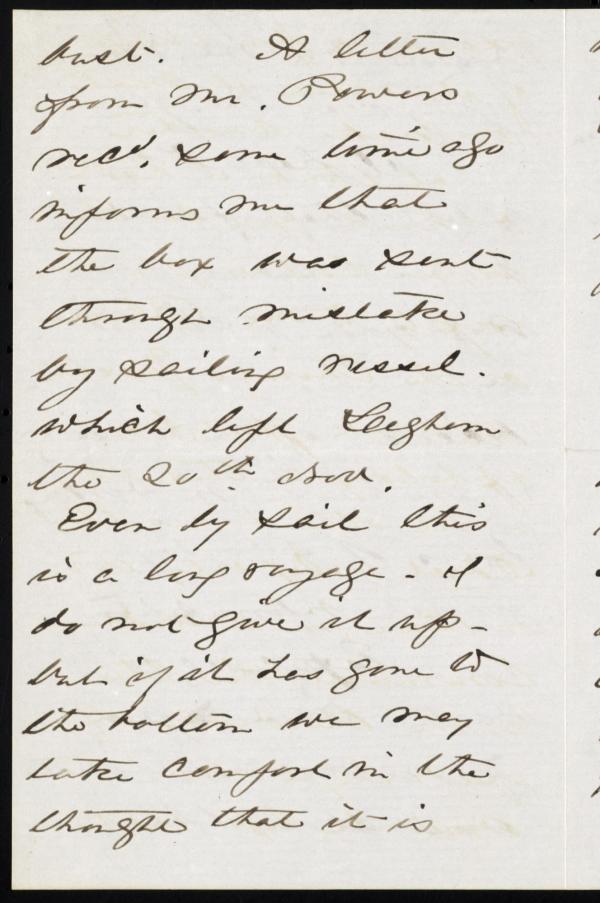 bust. A letter
from Mr. Powers
recd. some time ago
informs me that
the box was sent
through mistake
by sailing vessel.
which left Leghorn
the 20th Nov.
Even by sail this
is a long voyage - I
do not give it up -
but if it has gone to
the bottom we may
take comfort in the
thought that it is